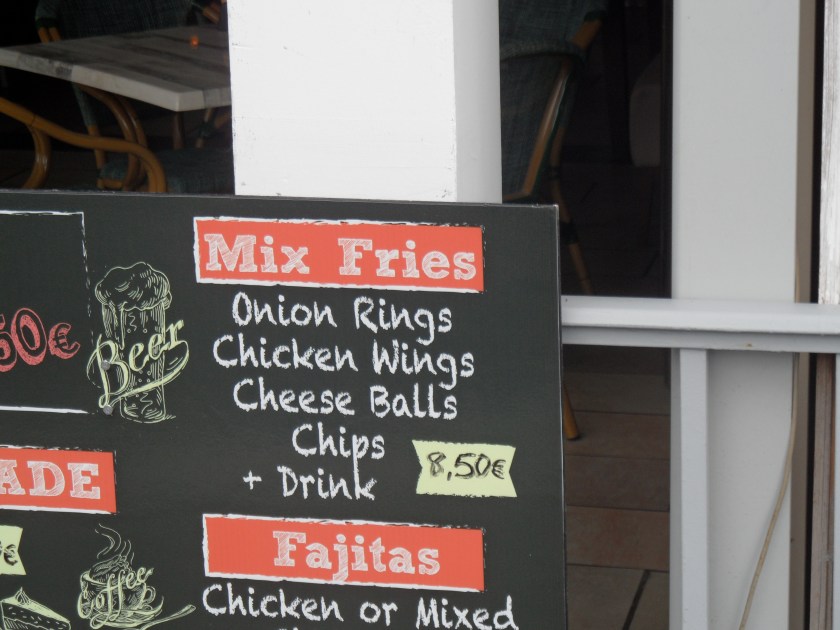 50€
Beer
Mix Fries
Onion Rings
Chicken Wings
Cheese Balls
Chips
+ Drink
8,50€
ADE
€
Coffee
Fajitas
Chicken or Mixed